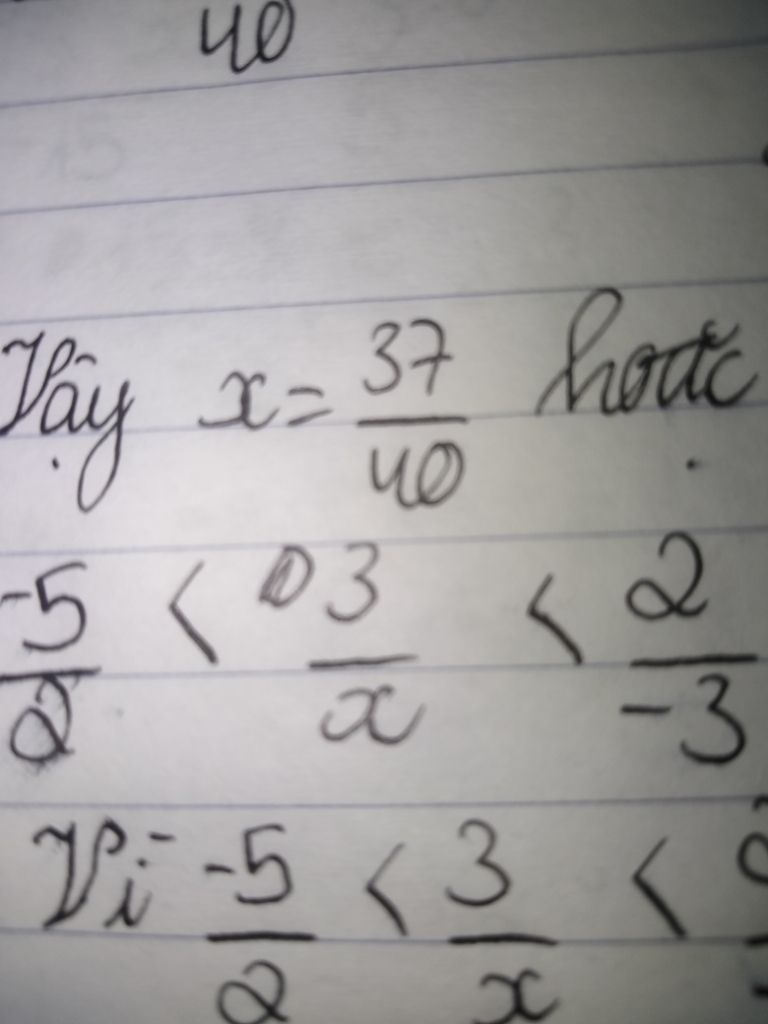 40
Vậy x = 37/40 hoặc
-5/2 < 3/x < 2/-3
Vì -5/2 < 3/x <